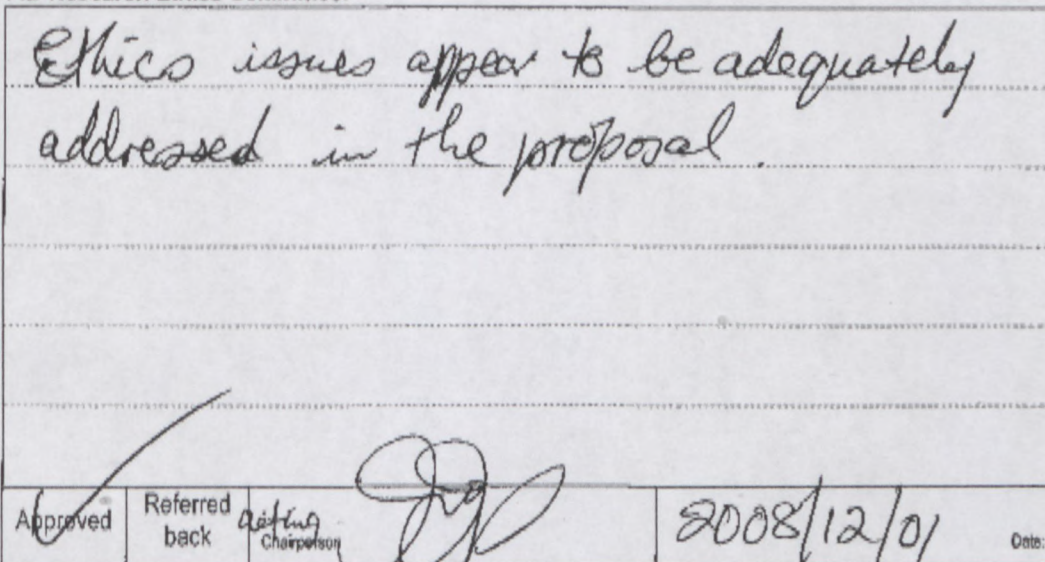 Ethics issues appear to be adequately
addressed in the proposal.
Approved
Referred back
acting Chairperson
2008/12/01
Date: